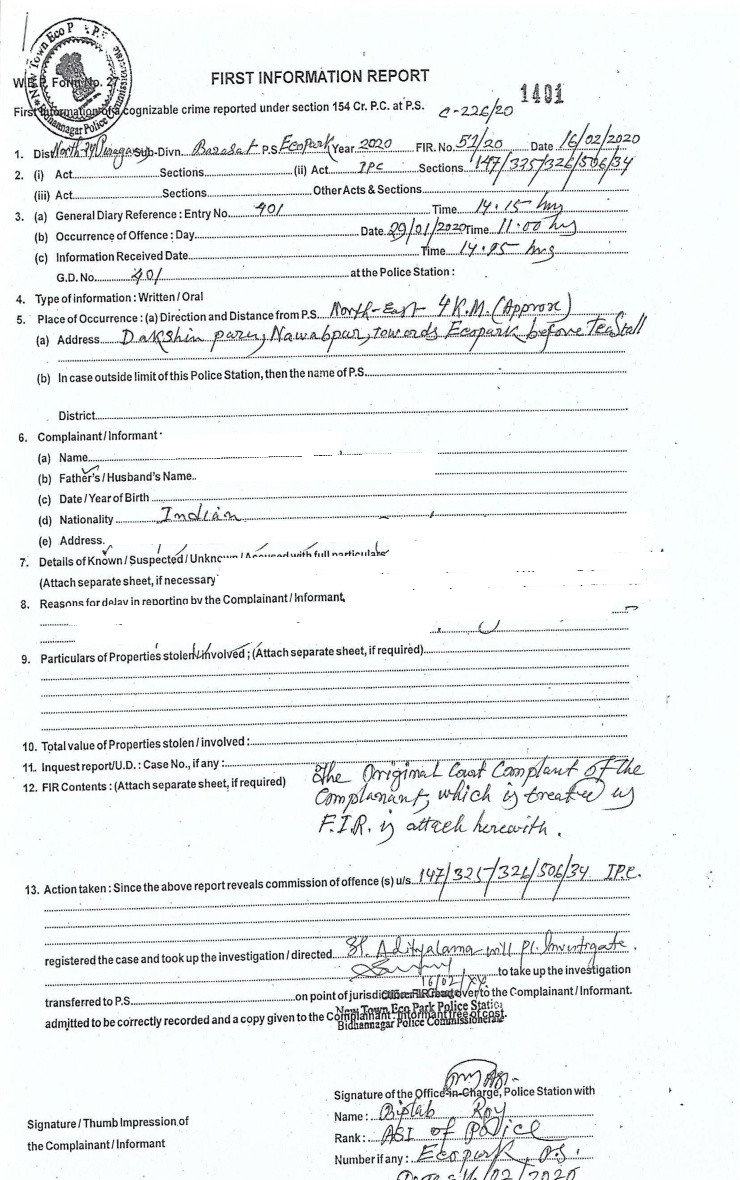 New Town Eco P P.P.
Bidhannagar Police Commissionerate
W.B.P. Form No. 27
FIRST INFORMATION REPORT
1401
First Information of a cognizable crime reported under section 154 Cr. P.C. at P.S. C-226/20
1. Dist. North Sub-Divn. Barasat P.S. Ecopark Year 2020 FIR. No. 51/20 Date 16/02/2020
2. (i) Act Sections (ii) Act IPC Sections 147/325/326/506/34
(iii) Act Sections Other Acts & Sections
3. (a) General Diary Reference : Entry No. 401 Time 14.15 hrs
(b) Occurrence of Offence : Day Date 29/01/2020 Time 11.00 hrs
(c) Information Received Date Time hrs
G.D. No. 401 at the Police Station :
4. Type of information : Written / Oral
5. Place of Occurrence : (a) Direction and Distance from P.S. North-East 4 K.M. (Approx)
(a) Address Dakshin para, Nawabpur, towards Ecopark before Tea Stall
(b) In case outside limit of this Police Station, then the name of P.S.
District
6. Complainant / Informant
(a) Name
(b) Father's / Husband's Name
(c) Date / Year of Birth
(d) Nationality Indian
(e) Address.
7. Details of Known / Suspected / Unknown / Accused with full particulars
(Attach separate sheet, if necessary
8. Reasons for delay in reporting by the Complainant / Informant
9. Particulars of Properties stolen / involved ; (Attach separate sheet, if required)
10. Total value of Properties stolen / involved :
11. Inquest report / U.D. : Case No., if any :
12. FIR Contents : (Attach separate sheet, if required) The Original Court Complant of the
Complanant, which is treated as
F.I.R. is attach herewith.
13. Action taken : Since the above report reveals commission of offence (s) u/s. 147/325/326/506/34 IPC.
registered the case and took up the investigation / directed SI. Adityalama will Pl. Investigate.
to take up the investigation
16/02/XX
transferred to P.S. on point of jurisdiction FIR read over to the Complainant / Informant.
New Town Eco Park Police Station
admitted to be correctly recorded and a copy given to the Complainant : Informant free of cost.
Bidhannagar Police Commissionerate
Signature of the Office-in-Charge, Police Station with
Signature / Thumb Impression of
the Complainant / Informant
Name : Biplab Roy
Rank : ASI of Police
Number if any : Ecopark P.S.
Date 16/02/2020